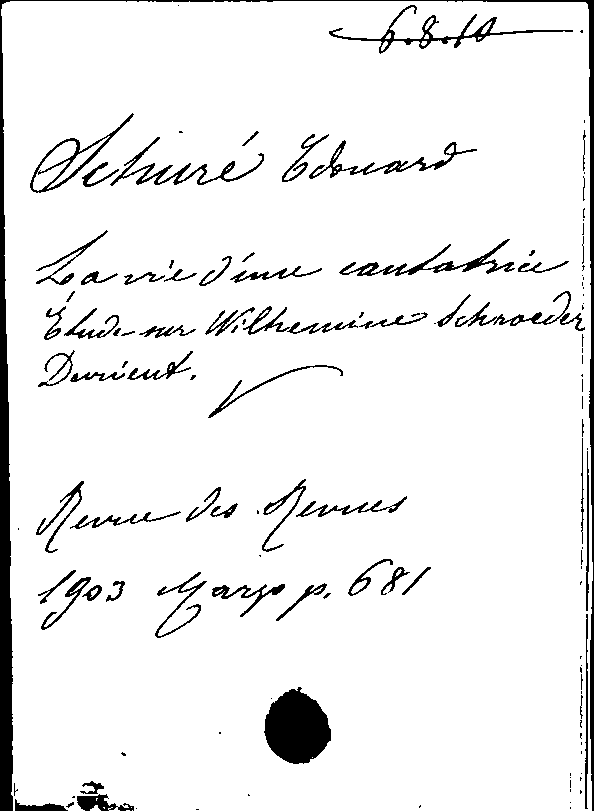 6.8.10
Schuré Edouard
La vie d'une cantatrice
Étude sur Wilhemine Schroeder
Devrient.
Revue des Revues
1903 Marzo p. 681